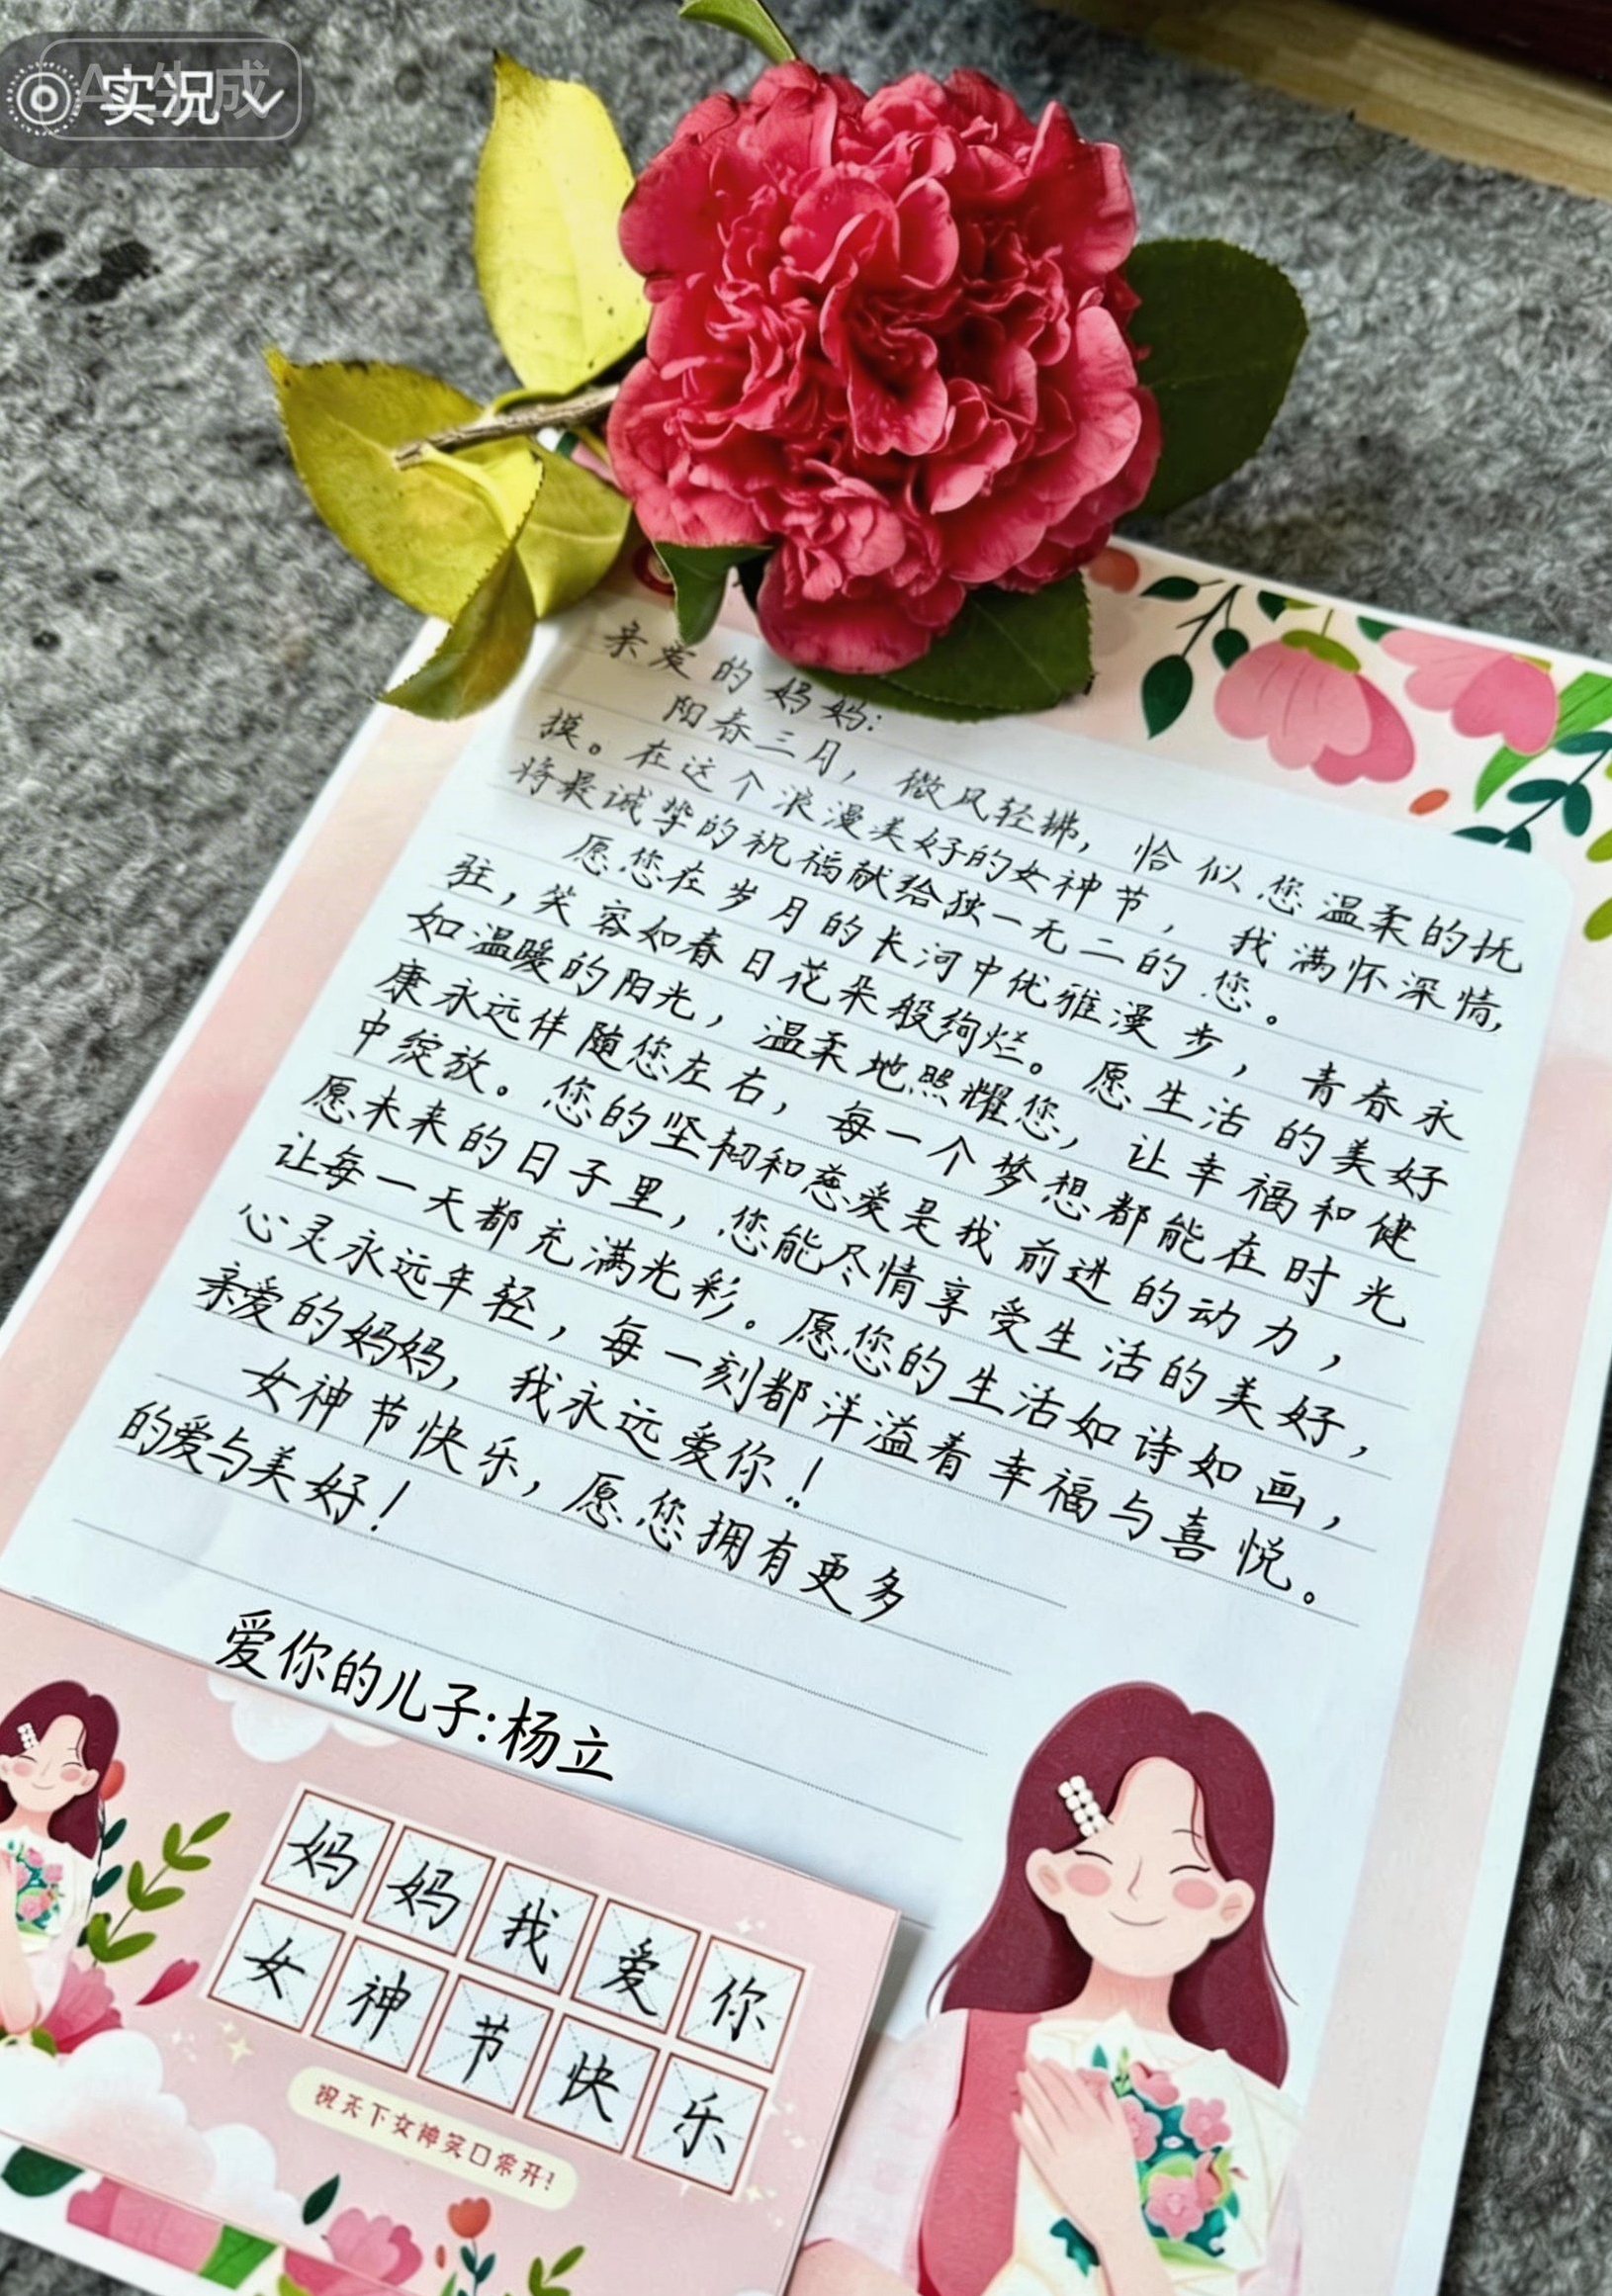 AI生成
实况
亲爱的妈妈:
阳春三月，微风轻拂，恰似您温柔的抚
摸。在这个浪漫美好的女神节，我满怀深情，
将最诚挚的祝福献给独一无二的您。
愿您在岁月的长河中优雅漫步，青春永
驻，笑容如春日花朵般绚烂。愿生活的美好
如温暖的阳光，温柔地照耀您，让幸福和健
康永远伴随您左右，每一个梦想都能在时光
中绽放。您的坚韧和慈爱是我前进的动力，
愿未来的日子里，您能尽情享受生活的美好，
让每一天都充满光彩。愿您的生活如诗如画，
心灵永远年轻，每一刻都洋溢着幸福与喜悦。
亲爱的妈妈，我永远爱你！
女神节快乐，愿您拥有更多
的爱与美好！
爱你的儿子:杨立
妈妈我爱你
女神节快乐
祝天下女神笑口常开!